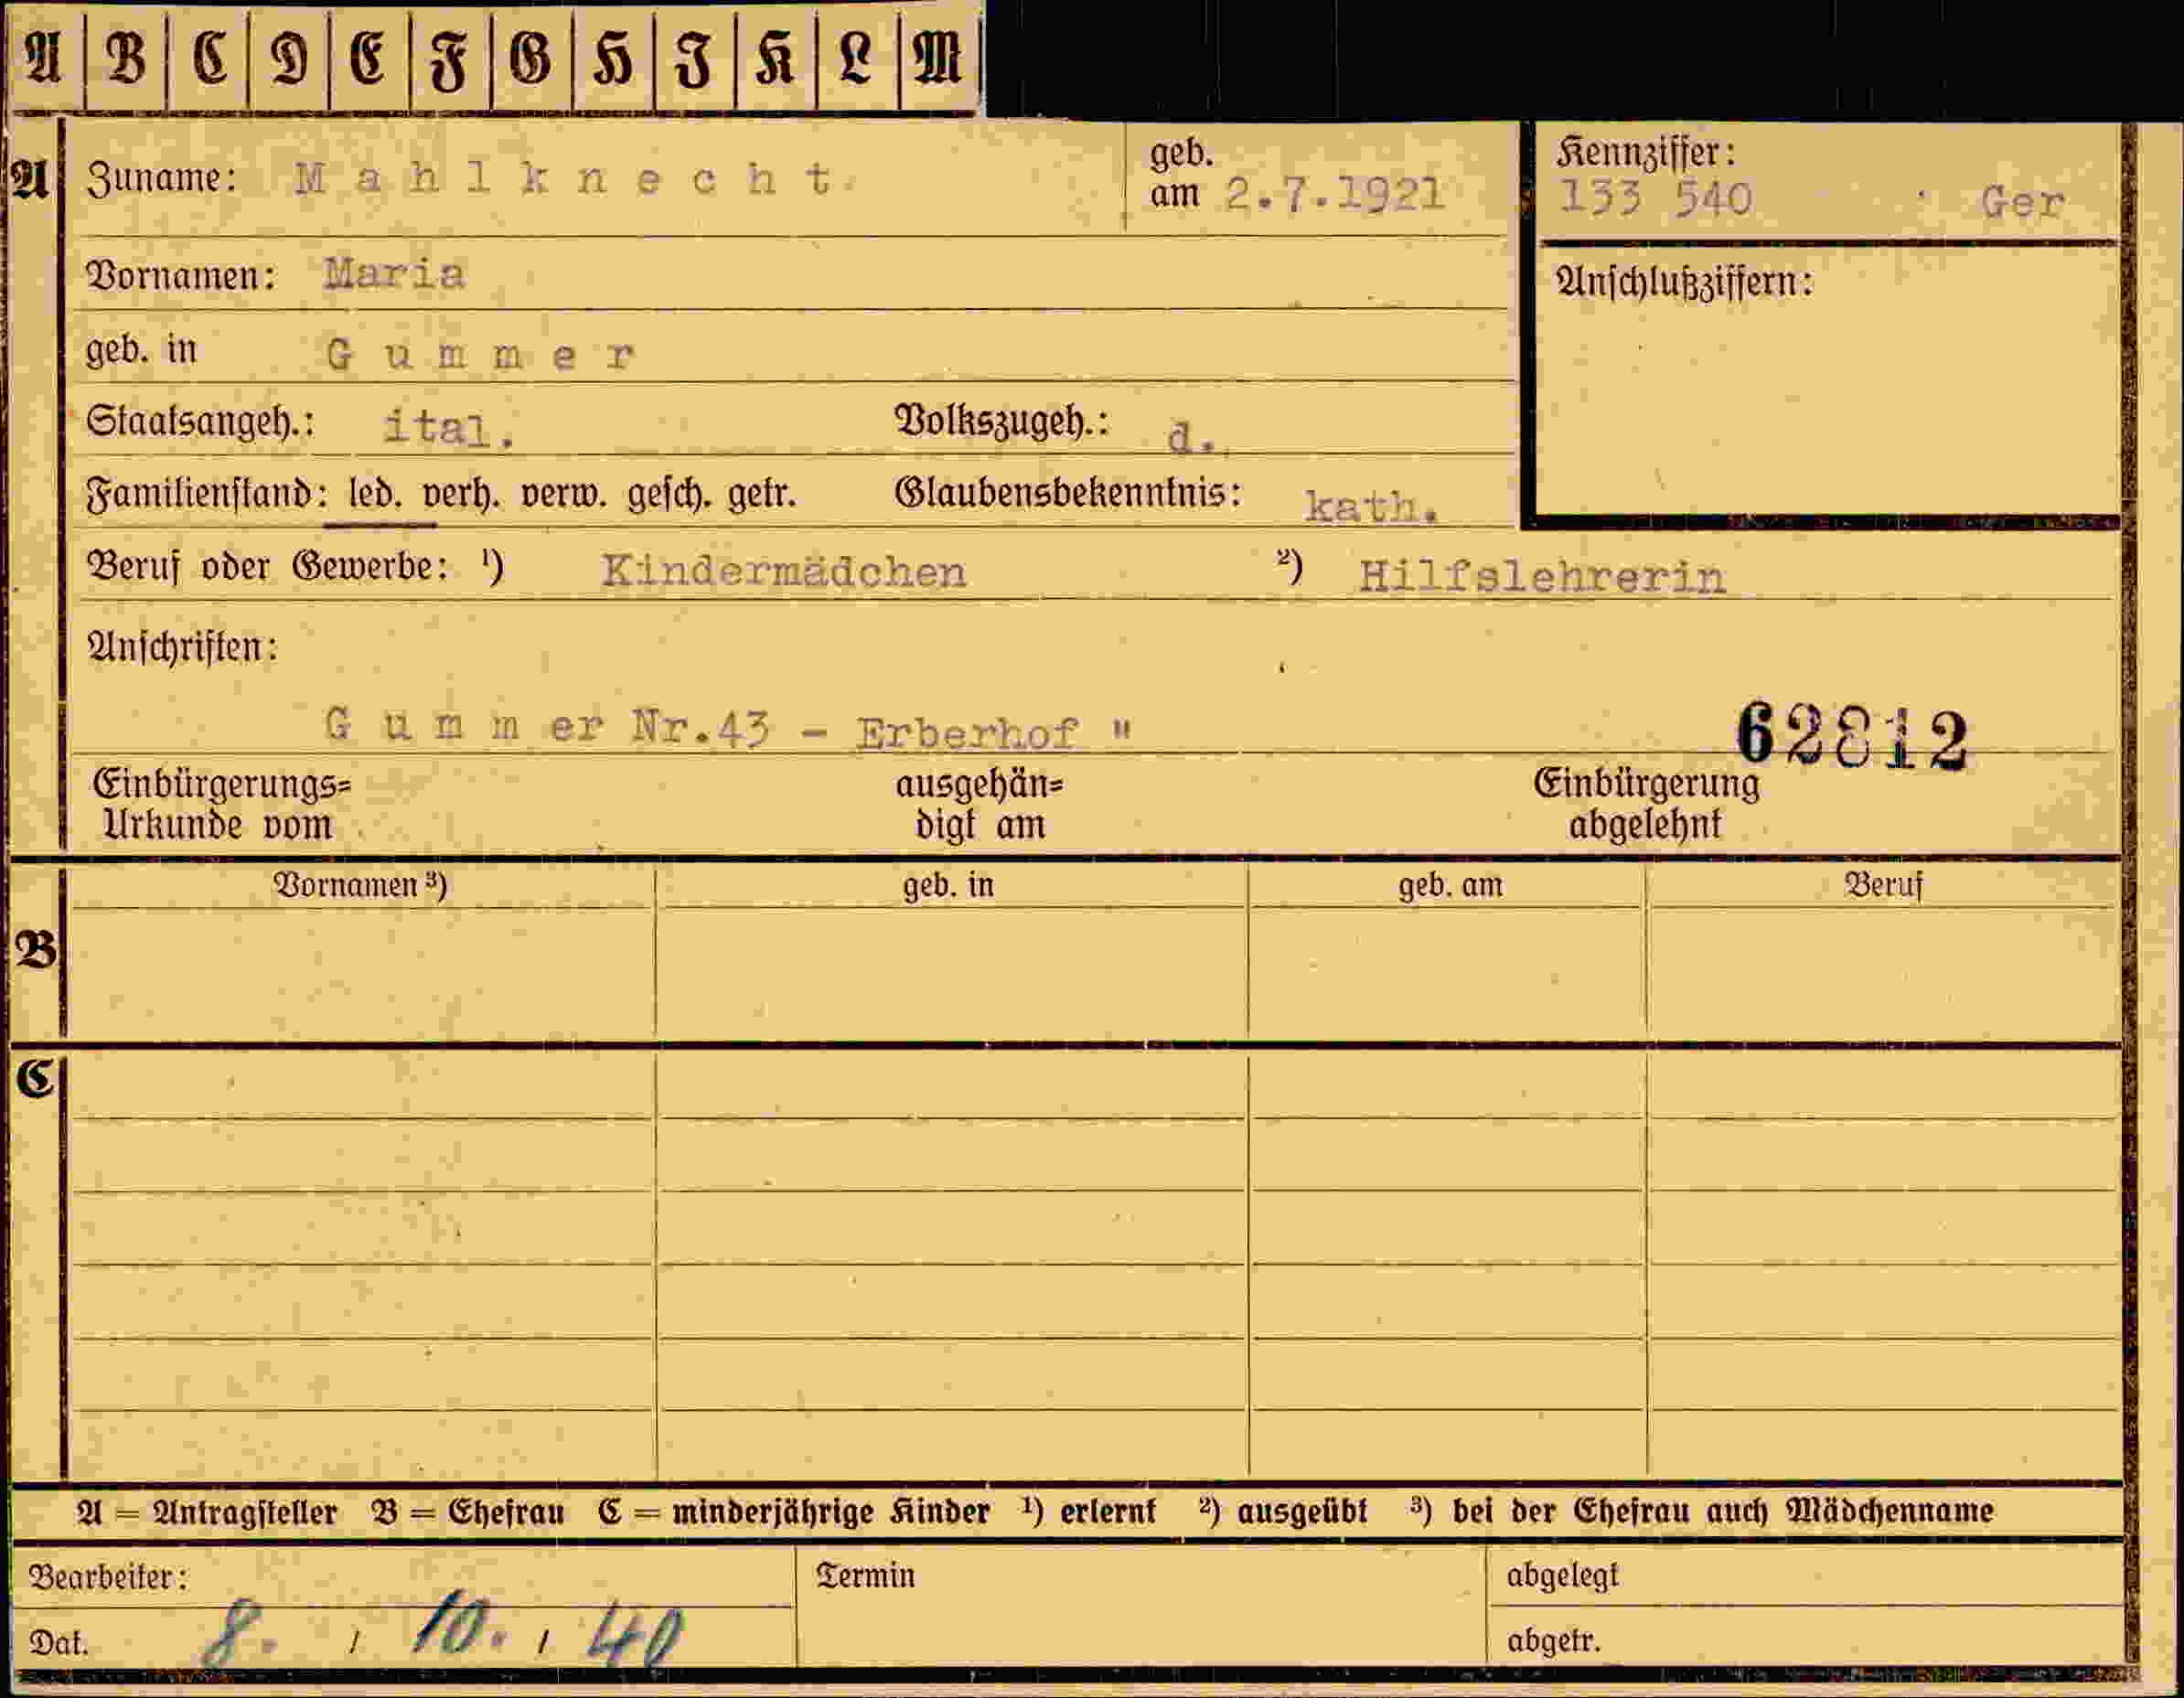 A B C D E F G H I K L M
A Zuname: M a h l k n e c h t geb. am 2.7.1921 Kennziffer: 133 540 Ger
Vornamen: Maria Anschlußziffern:
geb. in G u m m e r
Staatsangeh.: ital. Volkszugeh.: d.
Familienstand: led. verh. verw. gesch. getr. Glaubensbekenntnis: kath.
Beruf oder Gewerbe: ¹) Kindermädchen ²) Hilfslehrerin
Anschriften:
G u m m er Nr.43 - Erberhof " 62812
Einbürgerungs= ausgehän= Einbürgerung
Urkunde vom digt am abgelehnt
Vornamen ³) geb. in geb. am Beruf
B
C
A = Antragsteller B = Ehefrau C = minderjährige Kinder ¹) erlernt ²) ausgeübt ³) bei der Ehefrau auch Mädchenname
Bearbeiter: Termin abgelegt
Dat. 8. / 10. / 40 abgetr.